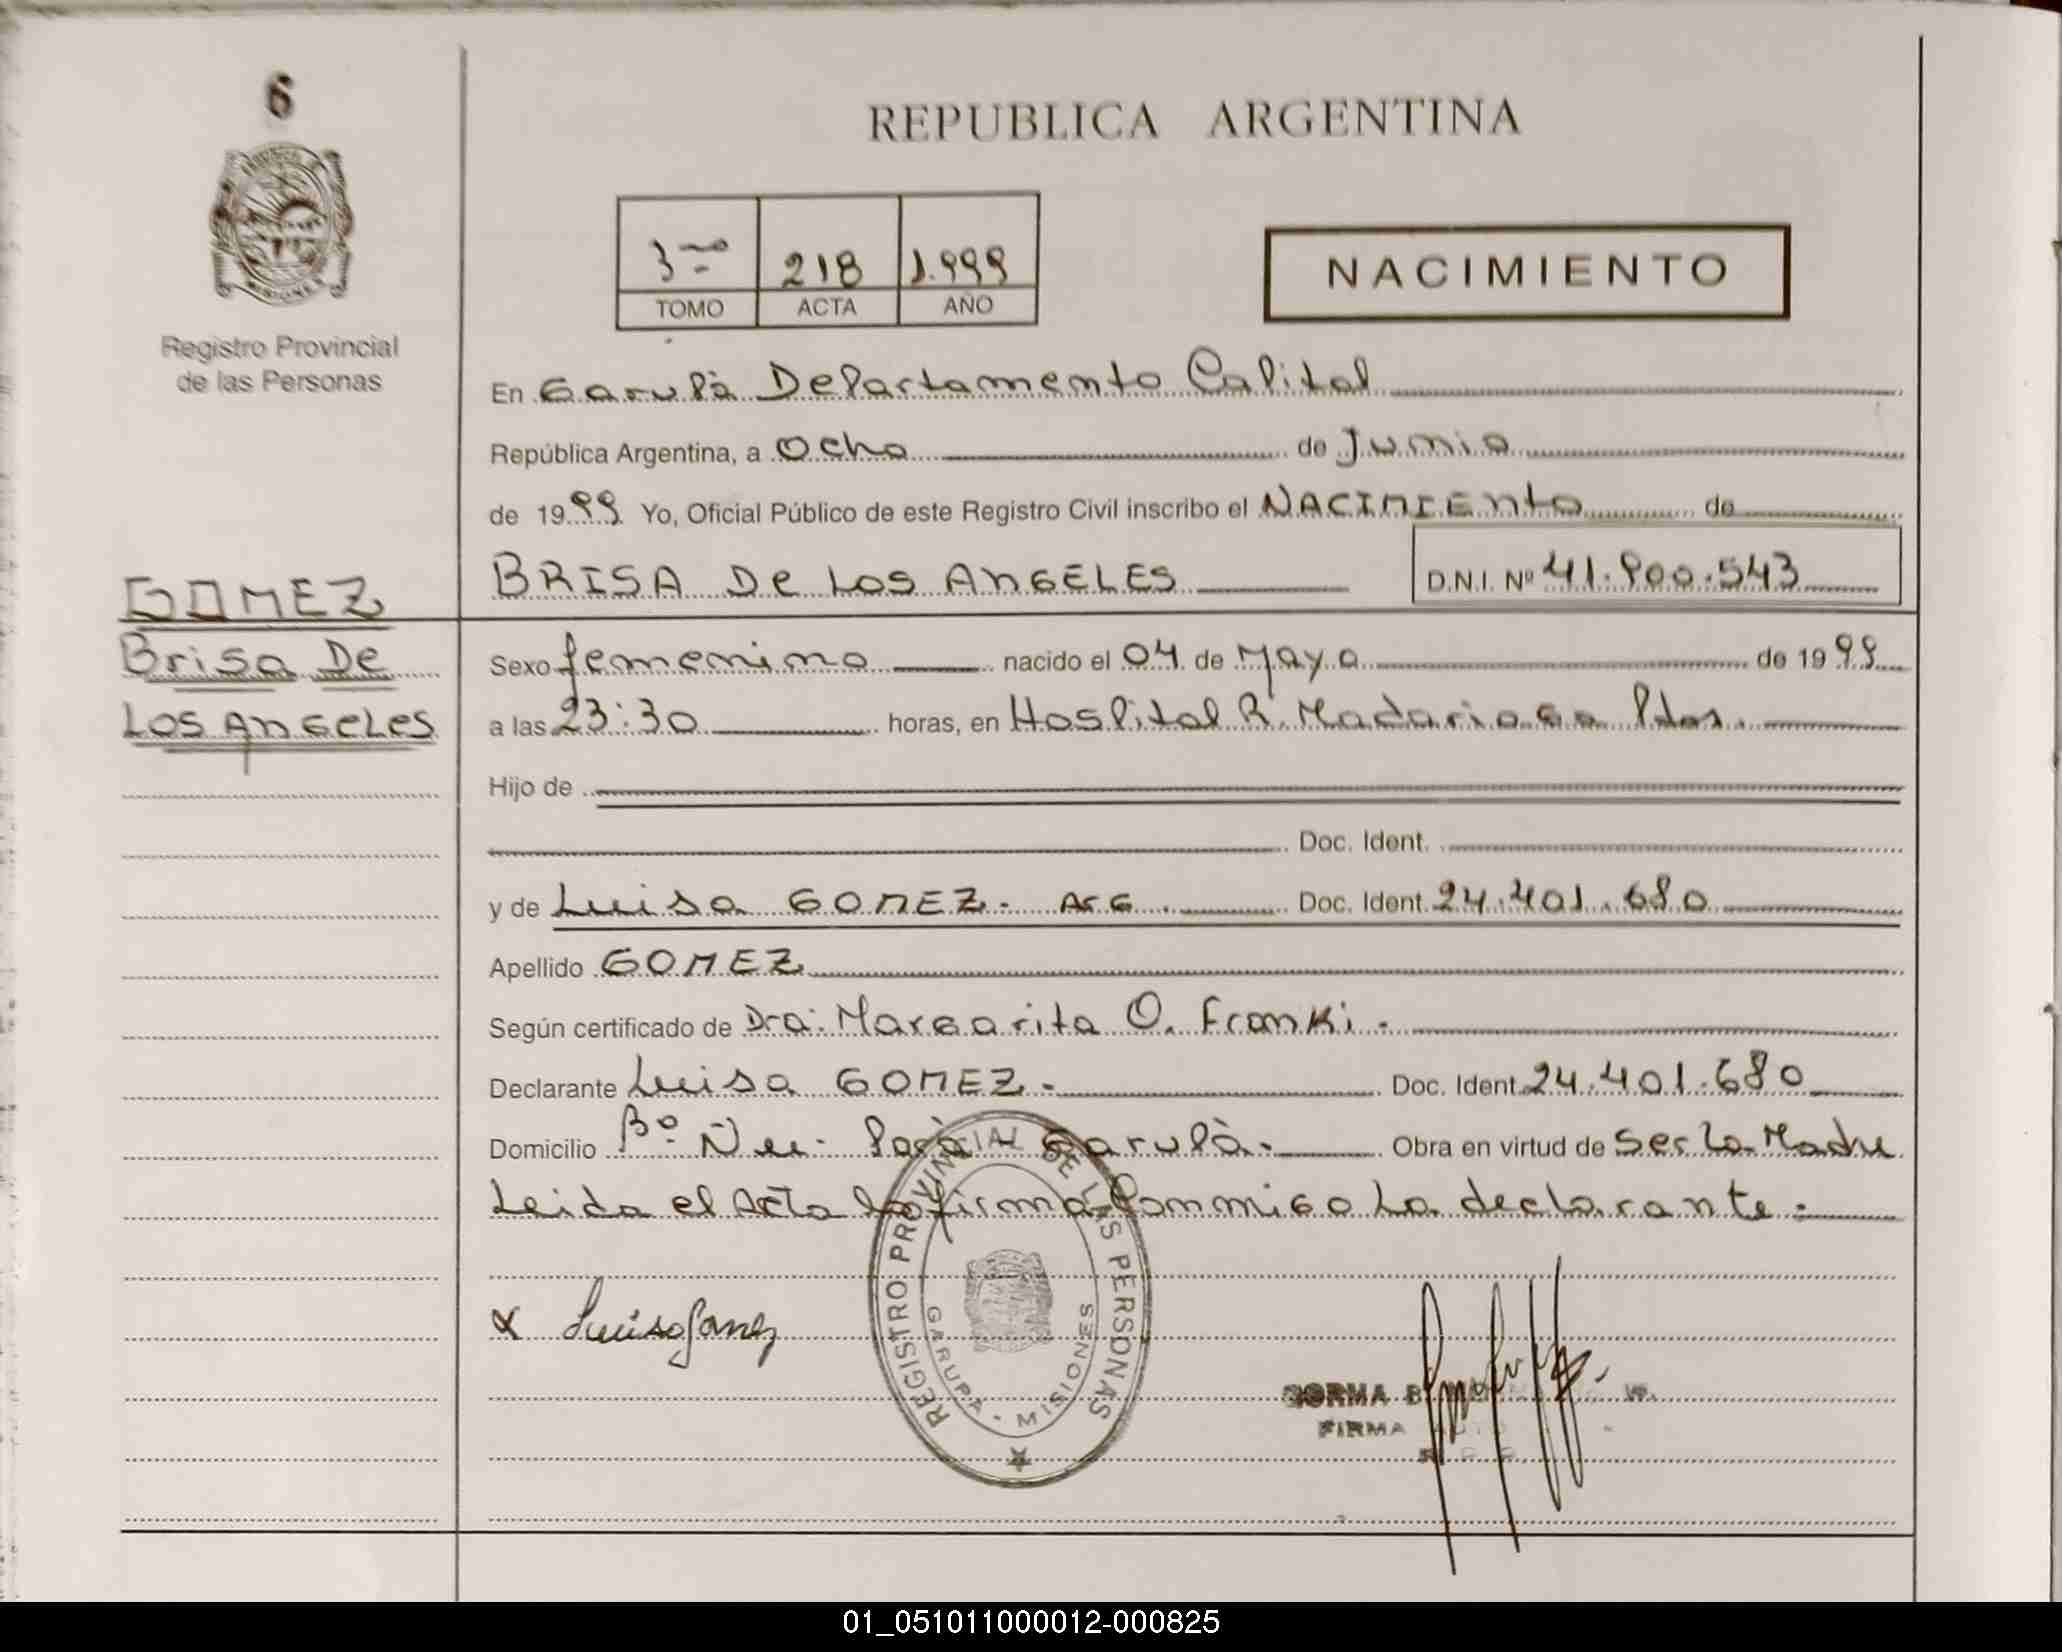 6
REPUBLICA ARGENTINA
Registro Provincial
de las Personas
218 1.999
TOMO ACTA AÑO
NACIMIENTO
En Garupà Departamento Capital
República Argentina, a Ocho de Junio
de 1999 Yo, Oficial Público de este Registro Civil inscribo el NACIMIEnto de
BRISA De Los AnGELES D.N.I. Nº 41.900.543
GOMEZ
Brisa De
Los AnGeLes
Sexo femenino nacido el 04 de Mayo de 1999
a las 23:30 horas, en Hospital R. Madariaga Pdas.
Hijo de
Doc. Ident.
y de Luisa GOMEZ. ArG. Doc. Ident. 24.401.680
Apellido GOMEZ
Según certificado de Dra: Margarita O. Franki.
Declarante Luisa GOMEZ. Doc. Ident. 24.401.680
Domicilio Bº Ñu Porà Garupà. Obra en virtud de Ser La Madre
Leida el Acta la firma Conmigo La declarante.
x Luisa Gomez
REGISTRO PROVINCIAL DE LAS PERSONAS
GARUPA - MISIONES
FIRMA
01_051011000012-000825